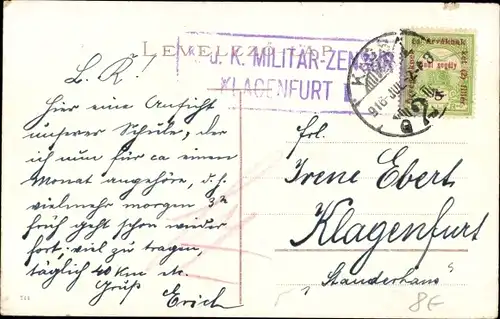 LEVELEZŐ LAP
K. MILITÄR-ZENSUR
KLAGENFURT
L. K!
Hier eine Ansicht
unserer Schule, der
ich nun für ca einen
Monat angehöre, d. h.
vielmehr morgen
früh geht schon wieder
fort, viel zu tragen,
täglich 40 Km etc.
Gruß
Erich
Frl.
Irene Ebert
Klagenfurt
"Standerhaus"
8€